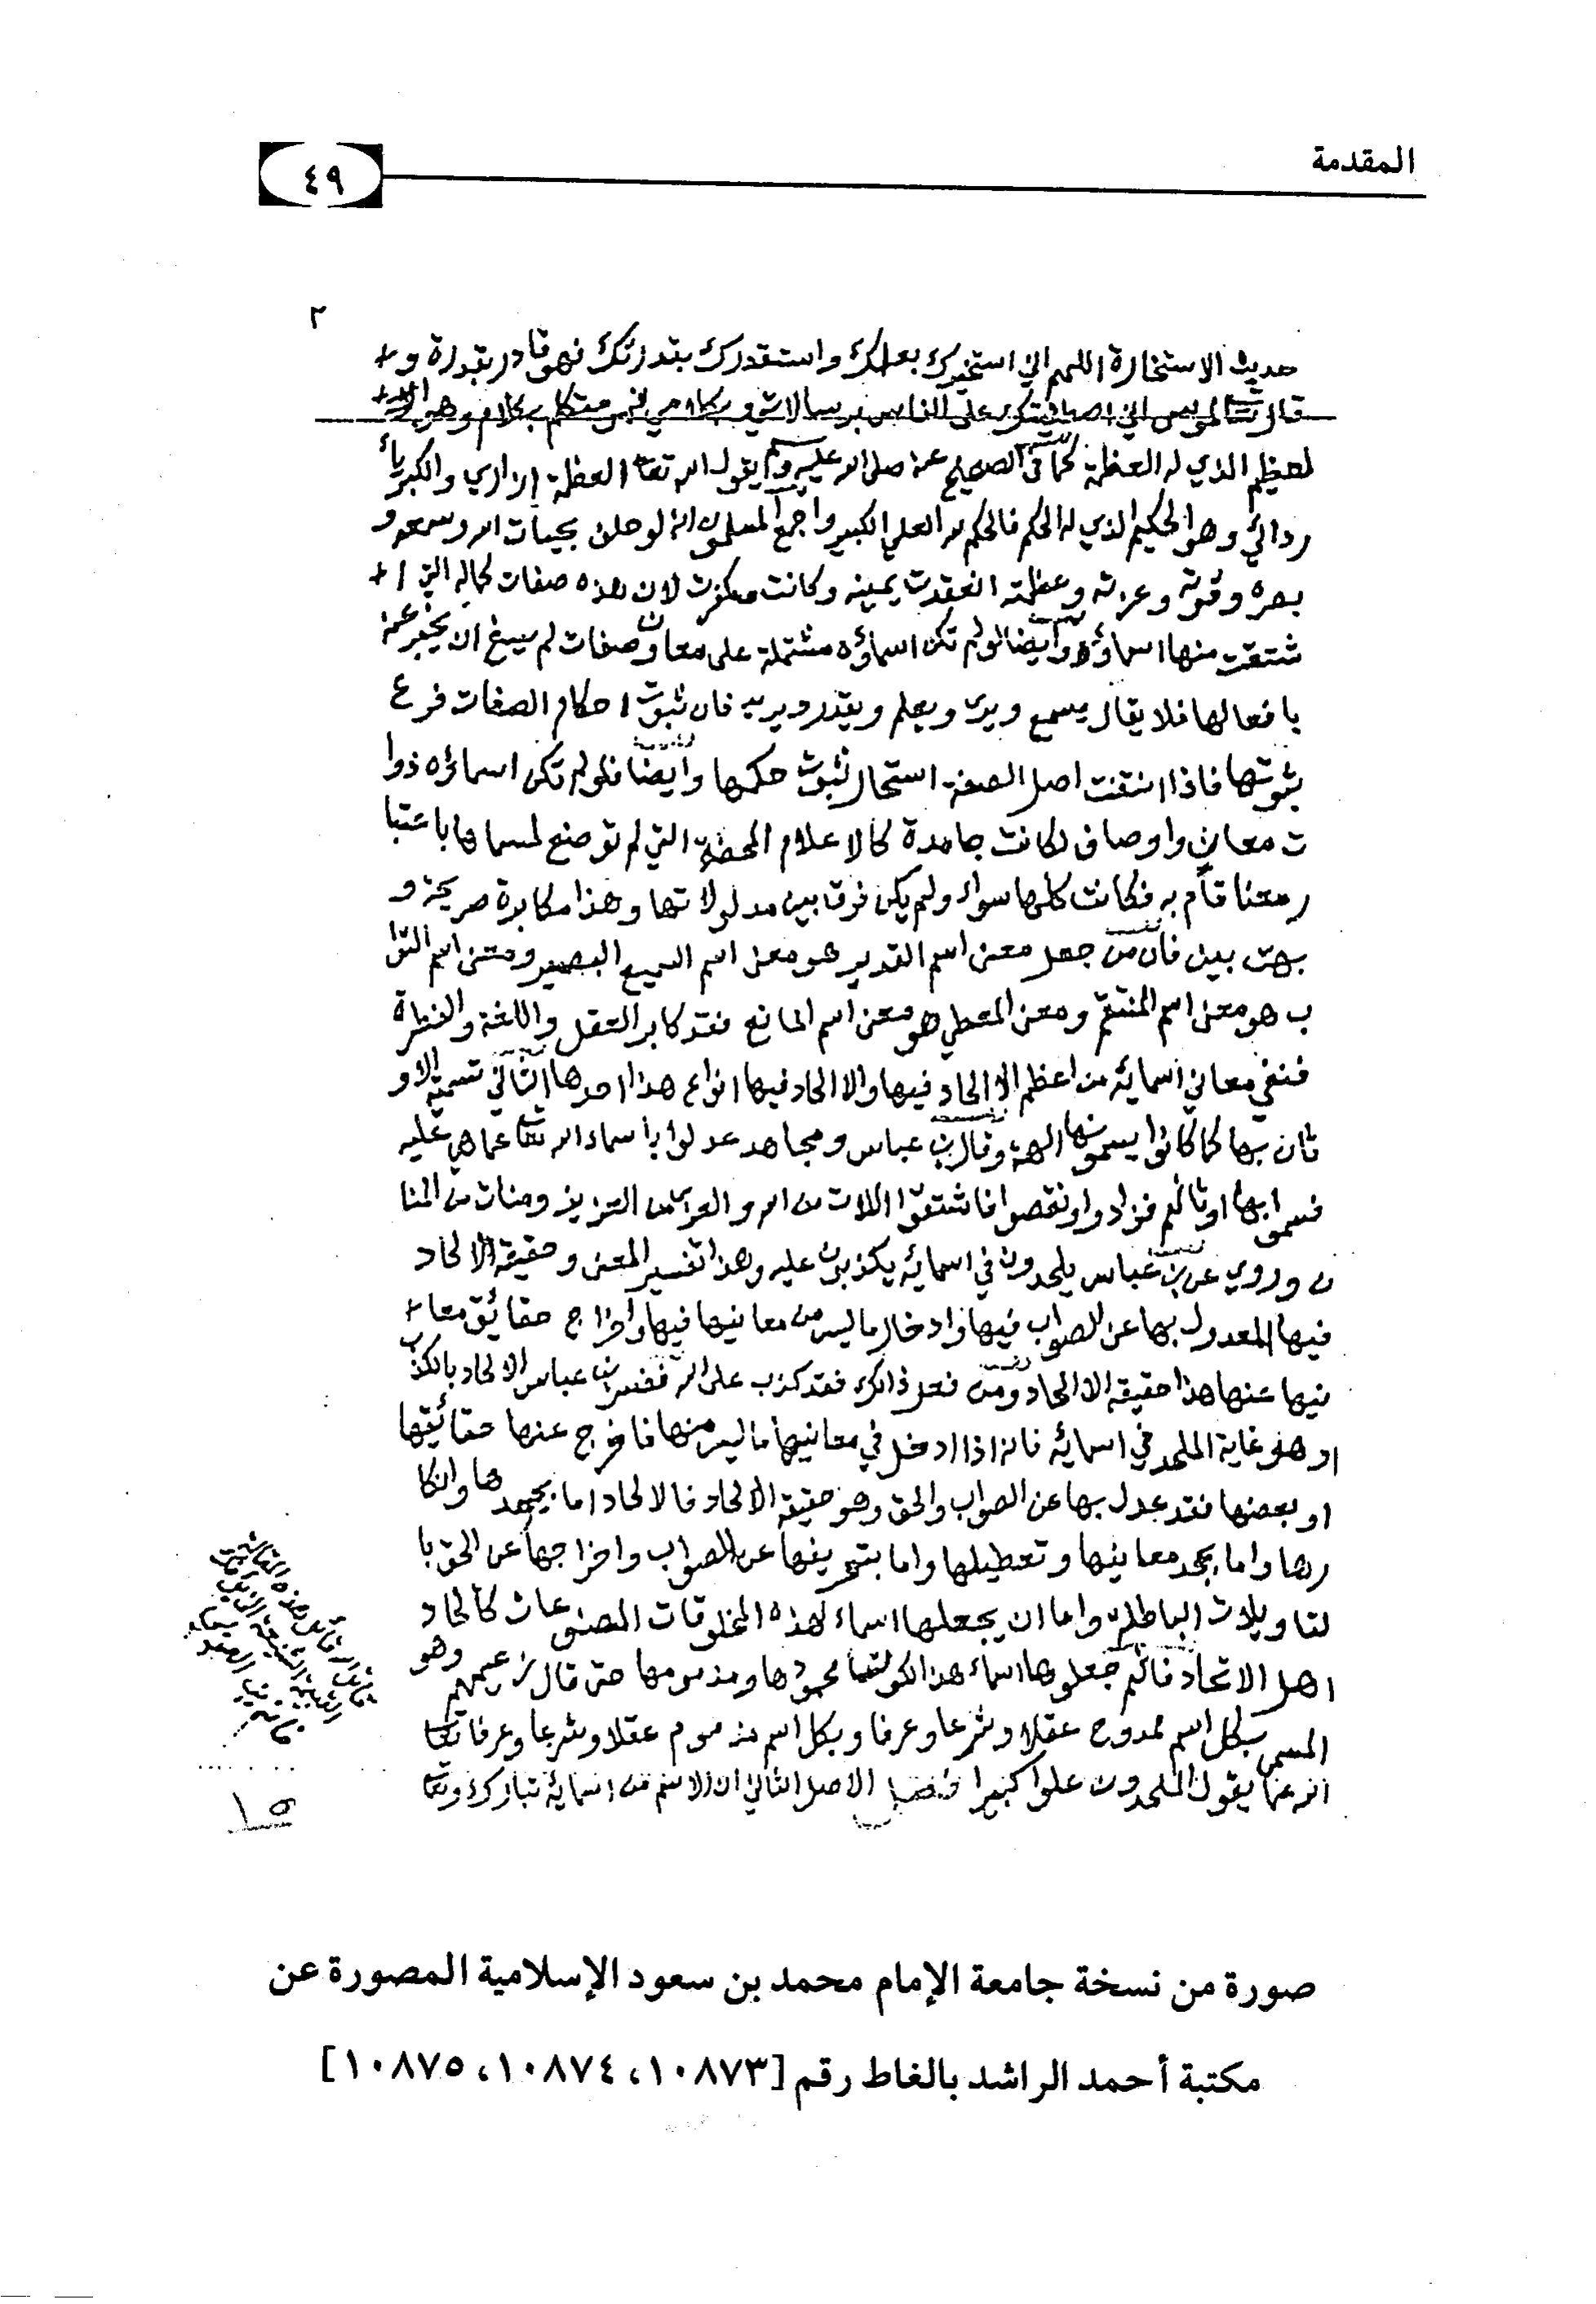 المقدمة
٤٩
٢
حديث الاستخارة اللهم اني استخيرك بعلمك واستقدرك بقدرتك فهو قادر بقدرة و
قال تعا لموسى اني اصطفيتك على الناس برسالاتي وبكلامي فهو متكلم بكلام وهو ا
لعظيم الذي له العظمة كما في الصحيح عنه صلى الله عليه وسلم يقول الله تعا العظمة إزاري والكبرياء
ردائي وهو الحكيم الذي له الحكم فالحكم لله العلي الكبير واجمع المسلمون انه لو حلف بحيات الله وسمعه و
بصره وقوته وعزته وعظمته انعقدت يمينه وكانت مكفرت لان هذه صفات كماله التي ا
شتقت منها اسماؤه وأيضا لو لم تكن اسماؤه مشتملة على معان وصفات لم يسغ ان يخبر عنه
بافعالها فلا يقال يسمع ويرى ويعلم ويقدر ويريد فان ثبوت احكام الصفات فرع
ثبوتها فاذا انتفت اصل الصفة استحال ثبوت حكمها وأيضا فلو لم تكن اسمائه ذوا
ت معان واوصاف لكانت جامدة كالاعلام المحضة التي لم توضع لمسماها باعتبا
ر معنا قام به فكانت كلها سواء ولم يكن فرق بين مدلولاتها وهذا مكابرة صريحة و
بهت بين فان من جعل معنى اسم القدير هو معنى اسم السميع البصير ومعنى اسم التوا
ب هو معنى اسم المنتقم ومعنى المعطي هو معنى اسم المانع فقد كابر العقل واللغة والفطرة
فنفي معاني اسمائه من اعظم الالحاد فيها والالحاد فيها انواع هذا احدها الثاني تسمية الاو
ثان بها كما كانوا يسمونها الهة وقال بن عباس ومجاهد عدلوا باسماء الله تعا عما هي عليه
فسموا بها اوثانهم فزادوا ونقصوا فاشتقوا اللات من الله والعزى من العزيز ومنات من المنا
ن وروي عن بن عباس يلحدون في اسمائه يكذبون عليه وهذا تفسير المعنى وحقيقة الالحاد
فيها العدول بها عن الصواب فيها وادخال ما ليس من معانيها فيها واخراج حقائق معا
نيها عنها هذا حقيقة الالحاد ومن فعل ذالك فقد كذب على الله ففسر بن عباس الالحاد بالكذب
او هو غاية الملحد في اسمائه فانه اذا ادخل في معانيها ما ليس منها فاخرج عنها حقائقها
او بعضها فقد عدل بها عن الصواب والحق وهو حقيقة الالحاد فالالحاد اما بجحدها وانكا
رها واما بجحد معانيها وتعطيلها واما بتحريفها عن الصواب واخراجها عن الحق با
لتاويلات الباطلة واما ان يجعلها اسماء لهذه المخلوقات المصنوعات كالحاد
اهل الاتحاد فانهم جعلوها اسماء هذا الكون محمودها ومذمومها حتى قال زعيمهم وهو
المسمى بكل اسم ممدوح عقلا وشرعا وعرفا وبكل اسم مذموم عقلا وشرعا وعرفا تعا
الله عما يقول الملحدون علوا كبيرا فصل الاصل الثاني ان الاسم من اسمائه تبارك وتعا
صورة من نسخة جامعة الإمام محمد بن سعود الإسلامية المصورة عن
مكتبة أحمد الراشد بالغاط رقم [١٠٨٧٣، ١٠٨٧٤، ١٠٨٧٥]